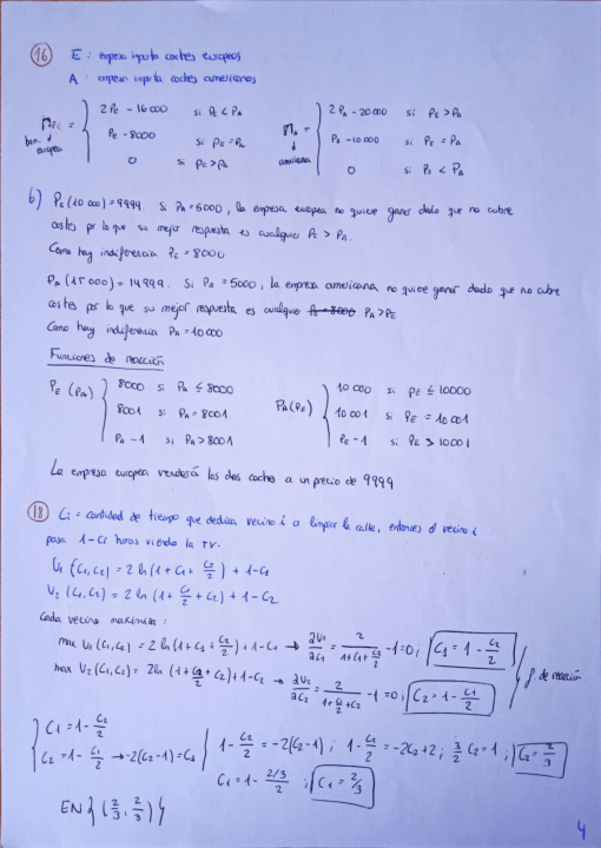 16 E: empresa importa coches europeos
A: empresa importa coches americanos
Π_E = { 2P_E - 16000 si P_E < P_A
P_E - 8000 si P_E = P_A
0 si P_E > P_A
ben. europea
Π_A = { 2P_A - 20000 si P_E > P_A
P_A - 10000 si P_E = P_A
0 si P_E < P_A
americana
b) P_E (10 000) = 9999. Si P_A = 5000, la empresa europea no quiere ganar dado que no cubre
costes por lo que su mejor respuesta es cualquier P_E > P_A.
Como hay indiferencia P_E = 8000
P_A (15 000) = 14999. Si P_E = 5000, la empresa americana no quiere ganar dado que no cubre
costes por lo que su mejor respuesta es cualquier P_A > P_E
Como hay indiferencia P_A = 10000
Funciones de reacción
P_E (P_A) { 8000 si P_A ≤ 8000
8001 si P_A = 8001
P_A - 1 si P_A > 8001
P_A (P_E) { 10 000 si P_E ≤ 10000
10 001 si P_E = 10 001
P_E - 1 si P_E > 10001
La empresa europea venderá los dos coches a un precio de 9999
18 Ci = cantidad de tiempo que dedica vecino i a limpiar la calle, entonces el vecino i
pasa 1-Ci horas viendo la TV.
U1 (C1, C2) = 2 ln (1 + C1 + C2/2) + 1 - C1
U2 (C1, C2) = 2 ln (1 + C1/2 + C2) + 1 - C2
Cada vecino maximiza:
max U1 (C1, C2) = 2 ln (1 + C1 + C2/2) + 1 - C1 → ∂U1/∂C1 = 2/(1 + C1 + C2/2) - 1 = 0; C1 = 1 - C2/2
max U2 (C1, C2) = 2 ln (1 + C1/2 + C2) + 1 - C2 → ∂U2/∂C2 = 2/(1 + C1/2 + C2) - 1 = 0; C2 = 1 - C1/2
f. de reacción
{ C1 = 1 - C2/2
C2 = 1 - C1/2 → -2(C2-1) = C1
1 - C2/2 = -2(C2-1); 1 - C2/2 = -2C2 + 2; 3/2 C2 = 1; C2 = 2/3
C1 = 1 - (2/3)/2; C1 = 2/3
EN { (2/3, 2/3) }
4